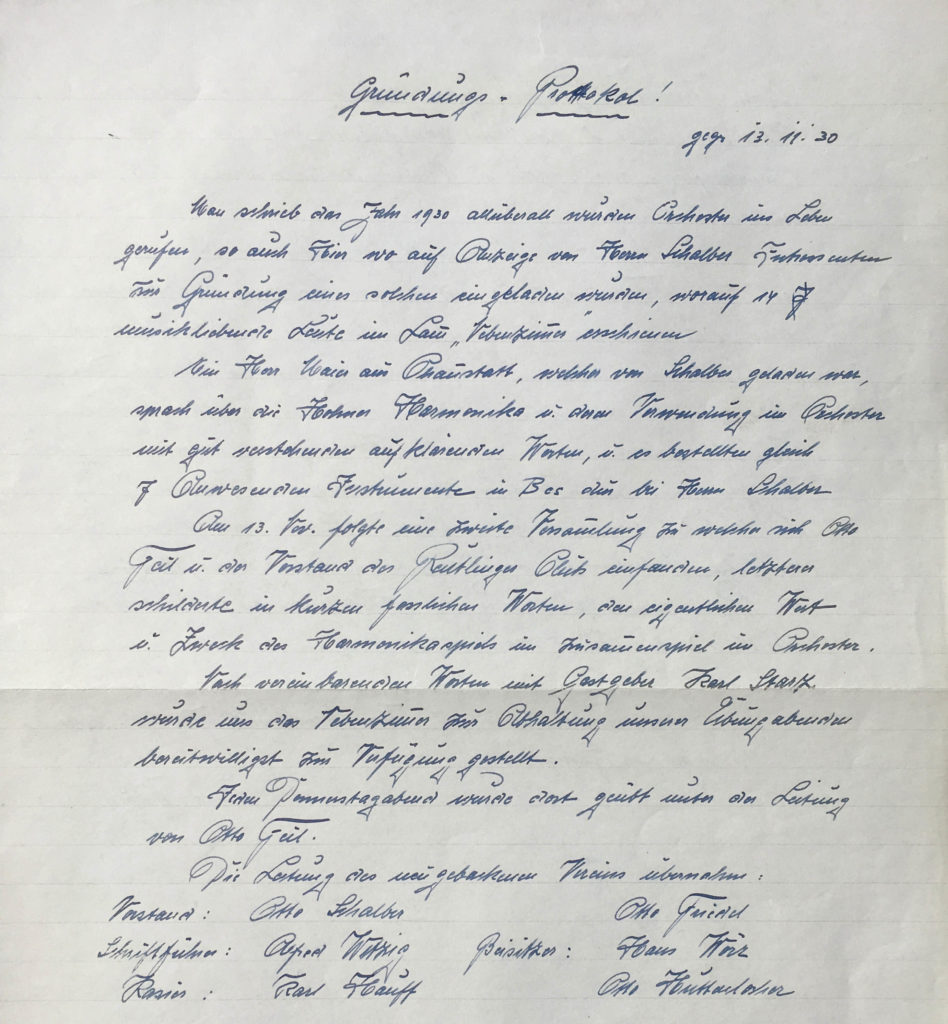 Gründungs - Prottokol!
gegr 13. 11. 30
Man schrieb das Jahr 1930 allüberall wurden Orchester ins Leben
gerufen, so auch Hier wo auf Anzeige von Herrn Schalber Intressenten
zur Gründung eines solchen eingeladen wurden, worauf 14
musikliebende Leute im Lam „Nebenzimer" erschienen
Ein Herr Maier aus Canstatt, welcher von Schalber geladen war,
sprach über die Hohner Harmonika u. deren Verwendung im Orchester
mit gut verstehenden aufklärenden Worten, u. es bestellten gleich
7 Anwesenden Instrumente in B es dur bei Herrn Schalber
Am 13. Nov. folgte eine zweite Versamlung zu welcher sich Otto
Feil u. der Vorstand des Reutlinger Clubs einfanden, letzterer
schilderte in kurzen fasslichen Worten, den eigentlichen Wert
u. Zweck des Harmonikaspiels im zusamenspiel im Orchester.
Nach vereinbarenden Worten mit Gastgeber Karl Starz.
wurde uns das Nebenzimer zur Abhaltung unserer Übungabenden
bereitwilligst zur Verfügung gestellt.
Jeden Donnerstagabend wurde dort geübt unter der Leitung
von Otto Feil.
Die Leitung des neugebackenen Vereins übernahm:
Vorstand: Otto Schalber Otto Friedel
Schriftführer: Alfred Wetzig Beisitzer: Hans Wörz
Kasier: Karl Hauff Otto